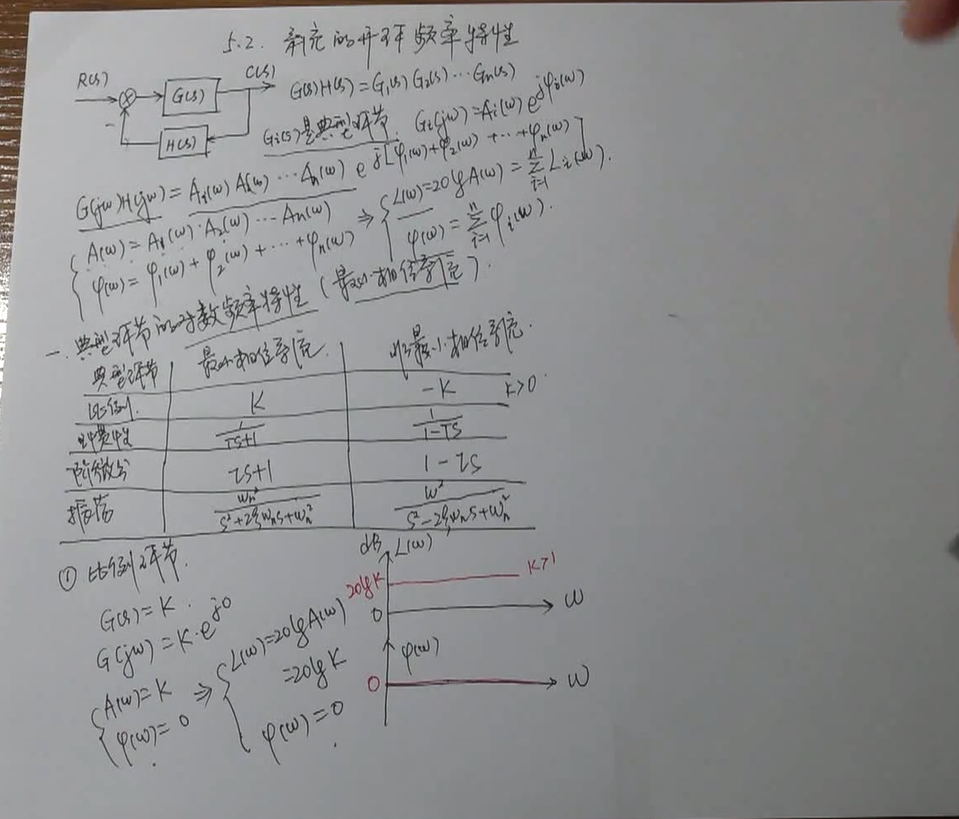 5.2. 系统的开环频率特性
R(s) G(s) C(s) G(s)H(s)=G₁(s)G₂(s)…Gn(s)
- H(s) Gi(s)是典型环节. Gi(jω)=Ai(ω)e^{jφi(ω)}
G(jω)H(jω)=A₁(ω)A₂(ω)…An(ω)e^{j[φ₁(ω)+φ₂(ω)+…+φn(ω)]}
{A(ω)=A₁(ω)·A₂(ω)…An(ω) ⇒ {L(ω)=20lgA(ω)=∑_{i=1}^{n}Li(ω).
φ(ω)=φ₁(ω)+φ₂(ω)+…+φn(ω) φ(ω)=∑_{i=1}^{n}φi(ω).
一.典型环节的对数频率特性(最小相位系统).
典型环节 最小相位系统. 非最小相位系统.
比例. K -K K>0
惯性 1/(TS+1) 1/(1-TS)
一阶微分 τS+1 1-τS
振荡 ωn²/(S²+2ξωnS+ωn²) ω²/(S²-2ξωnS+ωn²)
① 比例环节.
G(s)=K.
G(jω)=K·e^{j0}
{A(ω)=K ⇒ {L(ω)=20lgA(ω)
=20lgK
φ(ω)=0 φ(ω)=0
dB L(ω)
20lgK K>1
0 ω
φ(ω)
0 ω